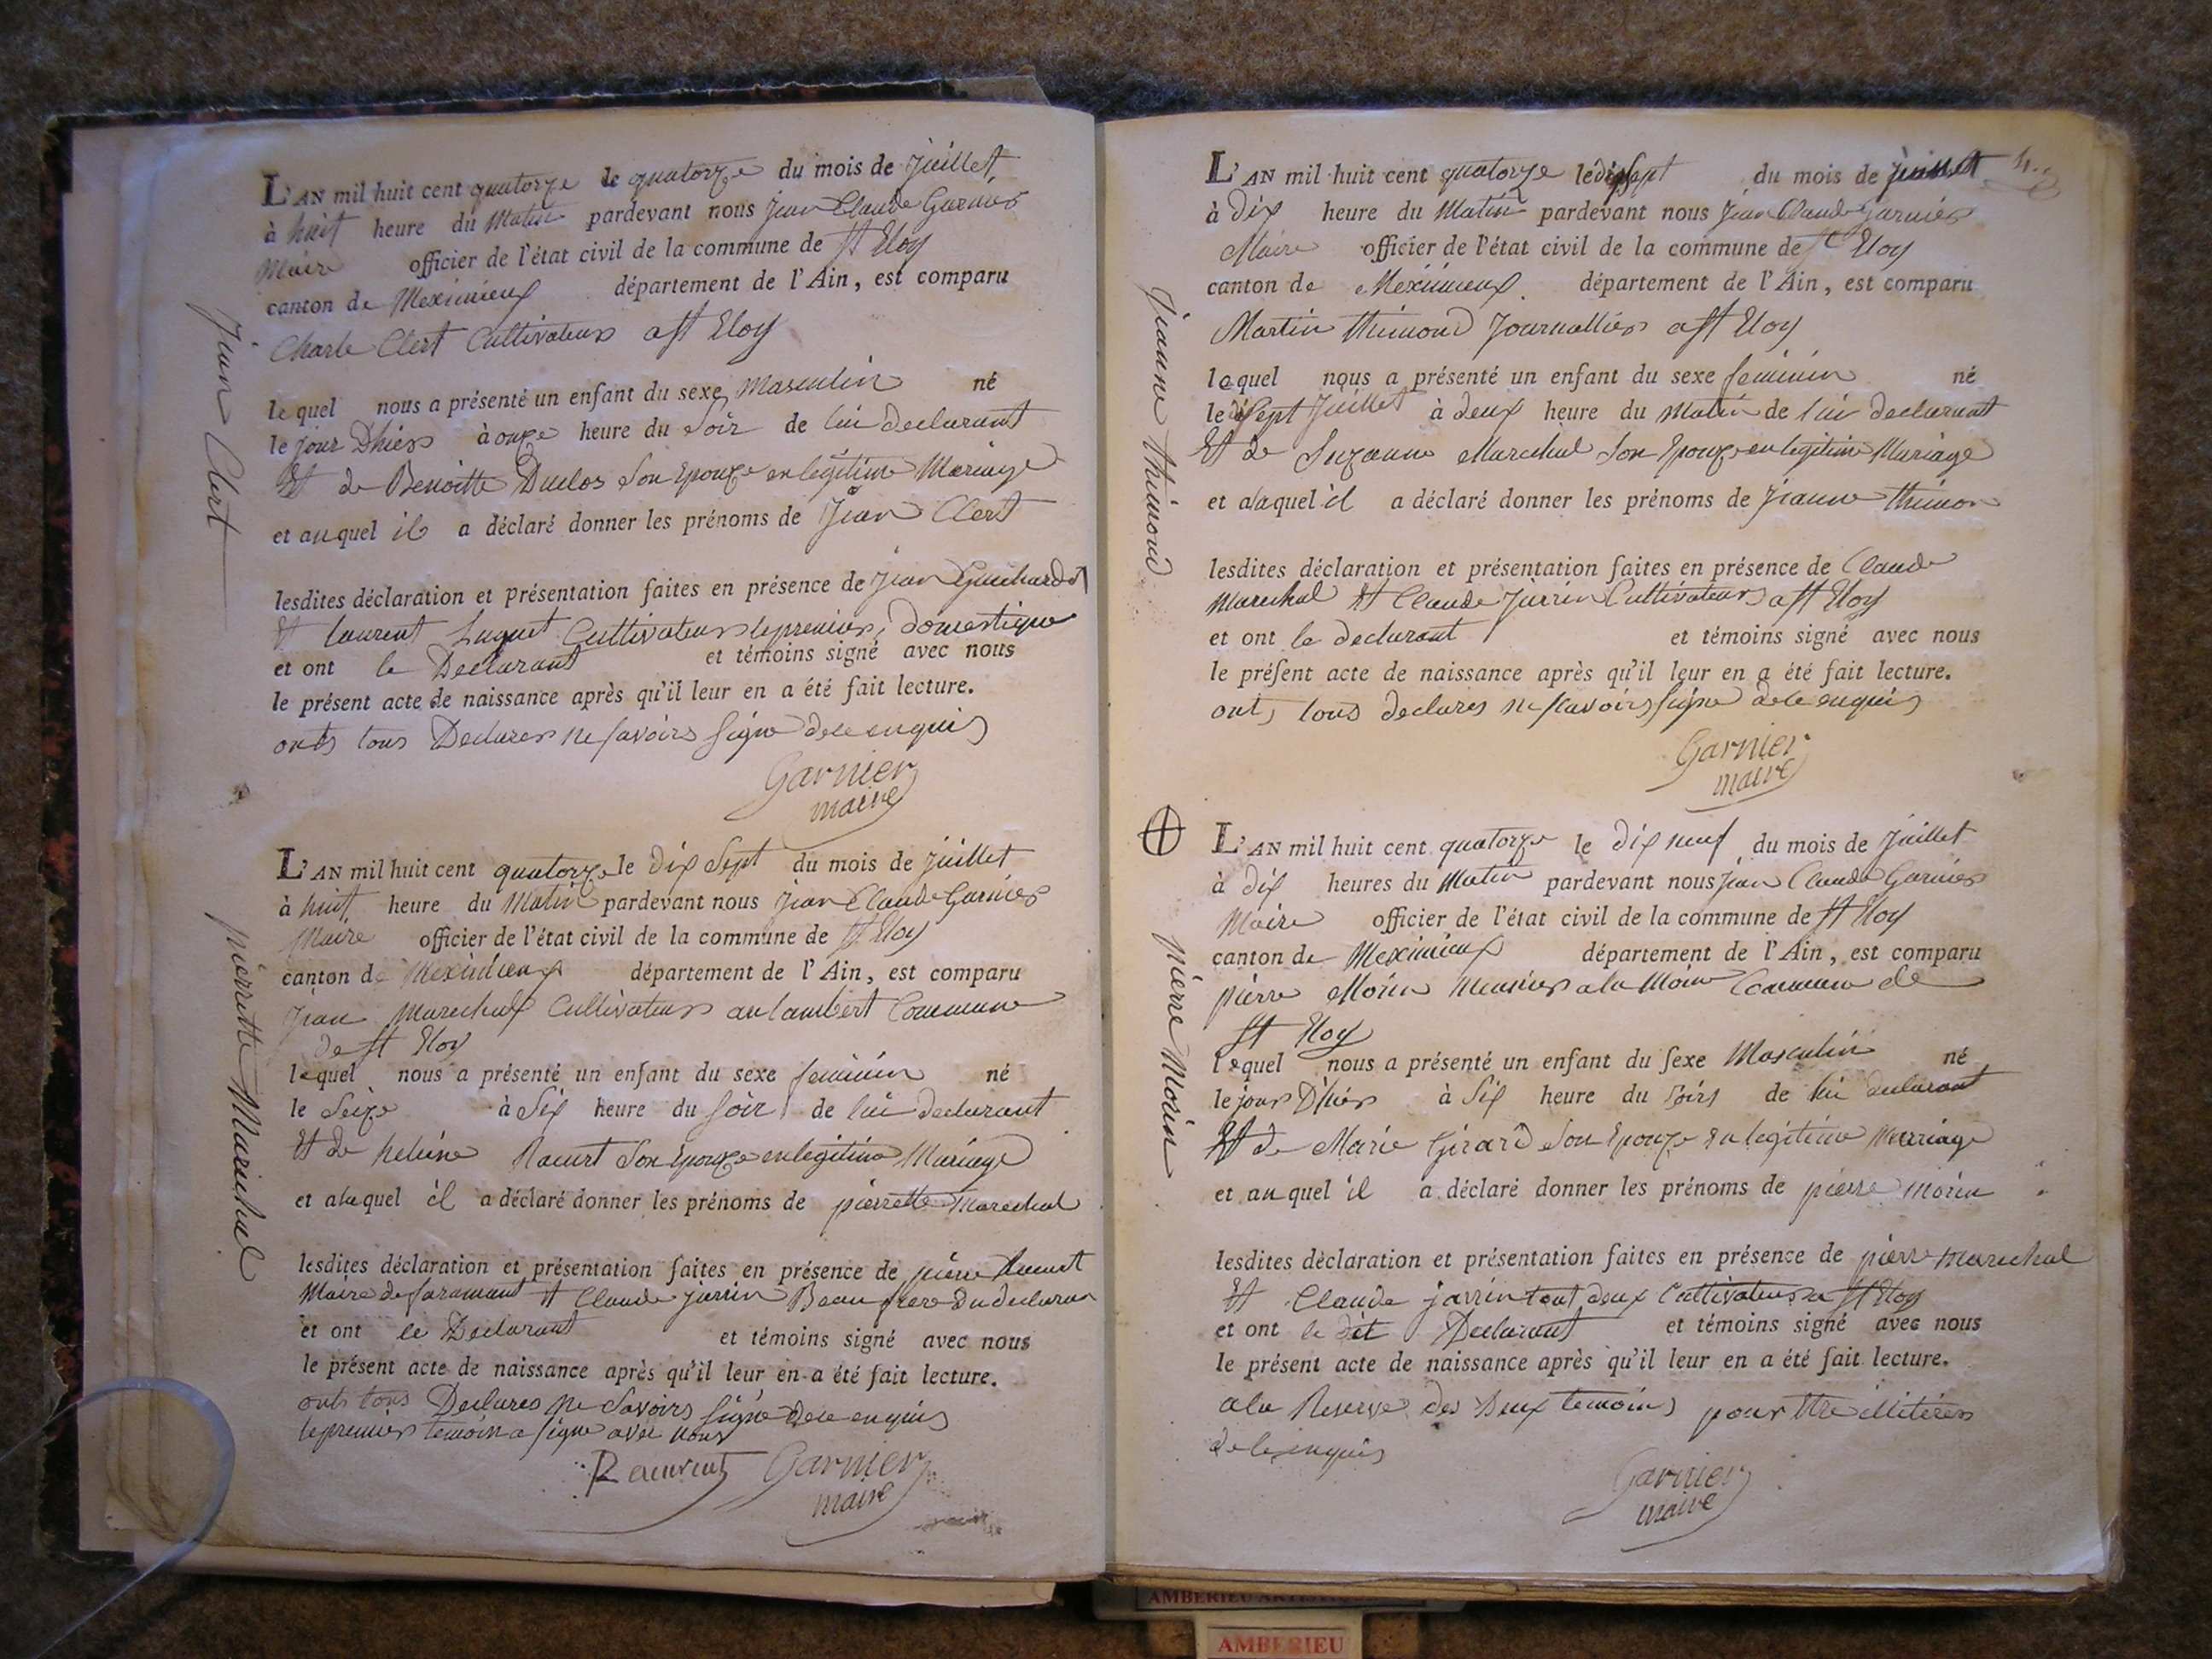 L'AN mil huit cent quatorze le quatorze du mois de Juillet
à huit heure du Matin pardevant nous Jean Claude Garnier
Maire officier de l'état civil de la commune de St Eloy
canton de Meximieux département de l'Ain, est comparu
Charle Clert Cultivateur a St Eloy
lequel nous a présenté un enfant du sexe Masculin né
le jour Dhier à onze heure du Soir de lui declarant
Et de Benoitte Duclos Son Epouze en legitime Mariage
et auquel il a déclaré donner les prénoms de Jean Clert
lesdites déclaration et présentation faites en présence de Jean Guichardot
Et laurent Luquet Cultivateur le premier, domestique
et ont le Declarant et témoins signé avec nous
le présent acte de naissance après qu'il leur en a été fait lecture.
onts tous Declarer ne savoir signe de ce enquis
Garnier
maire
Jean Clert
L'AN mil huit cent quatorze le Dix Sept du mois de juillet
à huit heure du Matin pardevant nous Jean Claude Garnier
Maire officier de l'état civil de la commune de St Eloy
canton de Meximieux département de l'Ain, est comparu
Jean Marechal Cultivateur au lambert Commune
de St Eloy
lequel nous a présenté un enfant du sexe feminin né
le Seize à Six heure du soir de lui declarant
Et de heleine Son Epouze en legitime Mariage
et alaquel il a déclaré donner les prénoms de pierrette Marechal
lesdites déclaration et présentation faites en présence de pierre
Maire de faramant Et Claude jarrin Beau frere du declaran
et ont le Declarant et témoins signé avec nous
le présent acte de naissance après qu'il leur en a été fait lecture.
onts tous Declares ne Savoirs Signe de ce enquis
le premier temoin a signe avec nous
Garnier
maire
pierrette Marechal
L'AN mil huit cent quatorze le dix sept du mois de juillet
à Dix heure du Matin pardevant nous Jean Claude Garnier
Maire officier de l'état civil de la commune de St Eloy
canton de Meximieux département de l'Ain, est comparu
Martin thimond Journallier a St Eloy
laquel nous a présenté un enfant du sexe feminin né
le disept Juillet à deux heure du Matin de lui declarant
Et de Suzanne Marechal Son Epouze en legitime Mariage
et alaquel il a déclaré donner les prénoms de Jeanne thimon
lesdites déclaration et présentation faites en présence de Claude
Marechal Et Claude Jarrin Cultivateurs a St Eloy
et ont le declarant et témoins signé avec nous
le présent acte de naissance après qu'il leur en a été fait lecture.
ont, tous declares ne scavoirs signe de ce enquis
Garnier
maire
Jeanne thimond
L'AN mil huit cent quatorze le dix neuf du mois de Juillet
à dix heures du Matin pardevant nous Jean Claude Garnier
Maire officier de l'état civil de la commune de St Eloy
canton de Meximieux département de l'Ain, est comparu
pierre Morin Meunier a la Commune de
St Eloy
lequel nous a présenté un enfant du sexe Masculin né
le jour D'hier à Six heure du Soirs de lui declarant
Et de Marie Girard Son Epouze en legitime Marriage
et auquel il a déclaré donner les prénoms de pierre morin
lesdites déclaration et présentation faites en présence de pierre Marechal
Et Claude jarrin tout deux Cultivateurs a St Eloy
et ont le dit Declarant et témoins signé avec nous
le présent acte de naissance après qu'il leur en a été fait lecture.
ala Reserve des Deux temoins pour Etre illiterer
de ce enquis
Garnier
maire
pierre Morin
AMBERIEU
AMBERIEU